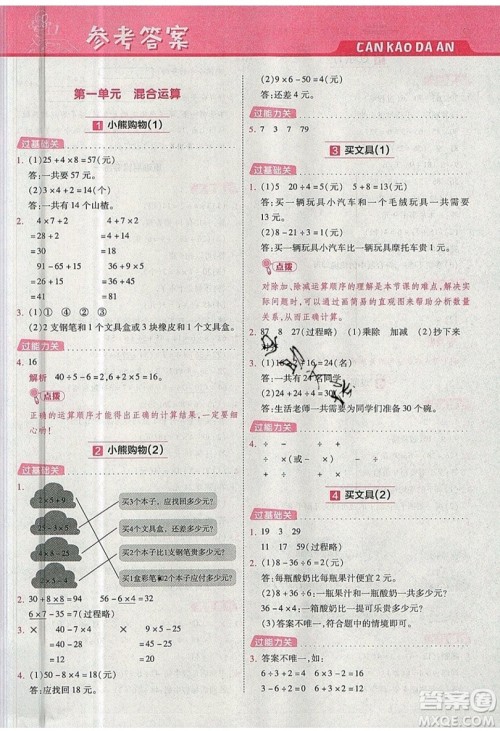 参考答案
CAN KAO DA AN
第一单元 混合运算
1 小熊购物(1)
过基础关
1. (1)25+4×8=57(元)
答:一共要57元。
(2)3×4+2=14(个)
答:一共有14个山楂。
2. 4×7+2 7+7×2
=28+2 =7+14
=30 =21
36-6×3 6×9-13
=36-18 =54-13
=18 =41
3. (1)① ④ ② ③
(2)2支钢笔和1个文具盒或3块橡皮和1个文具盒。
过能力关
4. 16
解析 40÷5-6=2
点拨
正确的运算顺序才能得出正确的计算结果,一定要细心哦!
2 小熊购物(2)
过基础关
1.
2×5+9 买3个本子,应找回多少元?
25-3×5 买4个文具盒,还差多少元?
4×8-25 买2个本子比1支钢笔贵多少元?
2×5-4 买1盒彩笔和2个本子应付多少元?
2. 30+8×8=94 56-4×6=32
6×7-35=7(过程略)
3. × 40-4×7 9×5-25
× =40-28 =45-25
=12 =20
4. (1)50-8×4=18(元)
答:应找回18元。
(2)9×6-50=4(元)
答:还差4元。
过能力关
5. 7 3 7 79
3 买文具(1)
过基础关
1. (1)5 20÷4=5(元) 5+8=13(元)
答:买一辆玩具小汽车和一个毛绒玩具一共要13元。
(2)8-21÷3=1(元)
答:买一辆玩具小汽车比一辆玩具摩托车贵1元。
点拨
对除加、除减运算顺序的理解是本节课的难点,大家在解决问题的时候,可以通过画简易的直观图来帮助分析数量关系,从而列出正确的算式并计算。
2. 87 8 27(过程略) (1)乘除 加减 (2)抄下来
答:一共有24名同学。
(2)24+24÷4=30(个)
答:生活老师一共要为同学们准备30个碗。
过能力关
4 买文具(2)
过基础关
1. 19 3 29
11 17 59(过程略)
2. (1)8-36÷6=2(元)
答:每瓶酸奶比每瓶果汁便宜2元。
(2)8+36÷6=14(元) 一瓶果汁和一瓶酸奶一共多少元?
36-4×8=4(元) 一箱酸奶比4瓶果汁贵多少元?
(答案不唯一,和图意相符、符合题中所给情境即可)
过能力关
3. 答案不唯一,如:
6÷3+2=4 6+3×2=12
3×2-6=0 6-3×2=0
答案圈
MXQE.COM